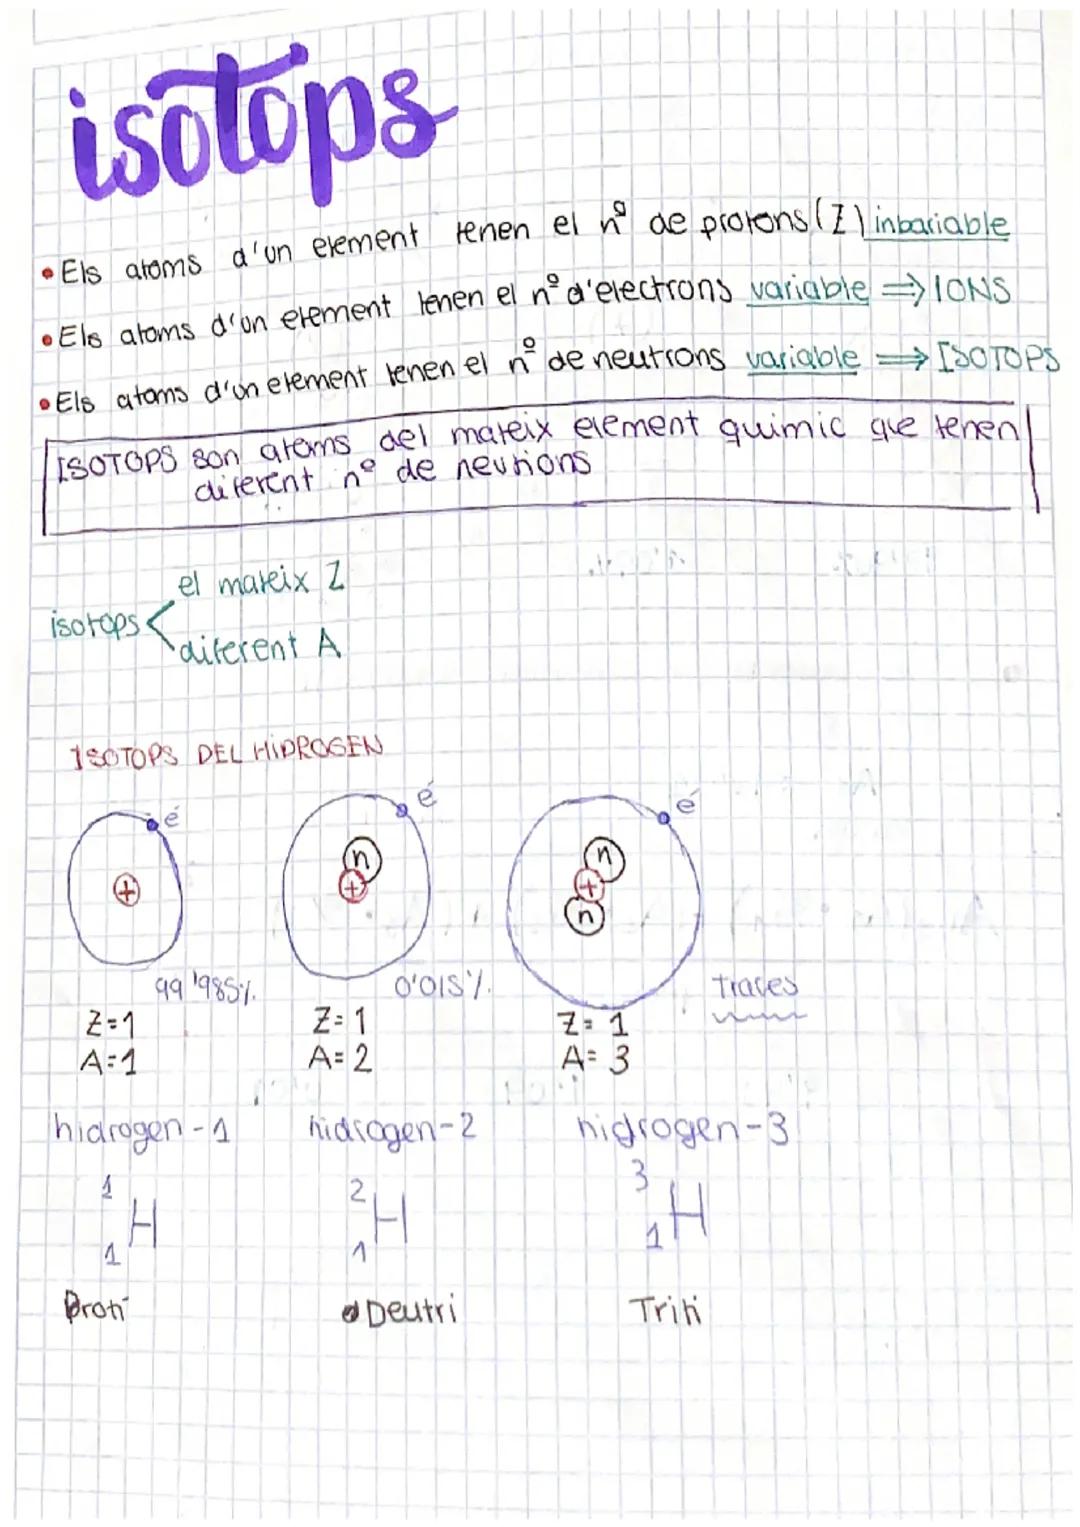 isotops
• Els atoms d'un element tenen el nº de protons (Z) inbariable
• Els atoms d'un element tenen el nº d'electrons variable ⇒ IONS
• Els atoms d'un element tenen el nº de neutrons variable ⇒ ISOTOPS
ISOTOPS son atoms del mateix element quimic que tenen
diferent nº de neutrons
el mateix Z
isotops <
diferent A
ISOTOPS DEL HIDROGEN
é é é
n n
+ + +
n
99'985%. 0'015%. Traces
Z=1 Z=1 Z=1
A=1 A=2 A=3
hidrogen-1 hidrogen-2 hidrogen-3
1 2 3
H H H
1 1 1
Proti Deutri Triti